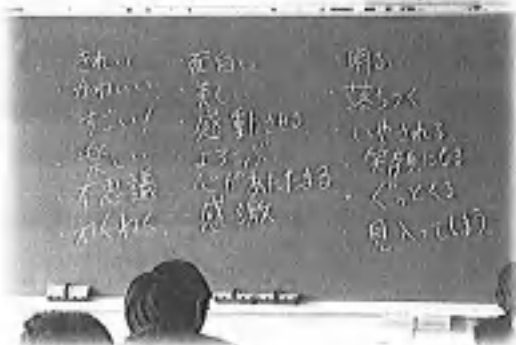 ・きれい
・かわいい
・すごい!
・楽しい
・不思議
・わくわく
・面白い
・美しい
・感動させる
・心があたたまる
・感激
・明るい
・落ちつく
・いやされる
・笑顔になる
・ぐっとくる
・見入ってしまう